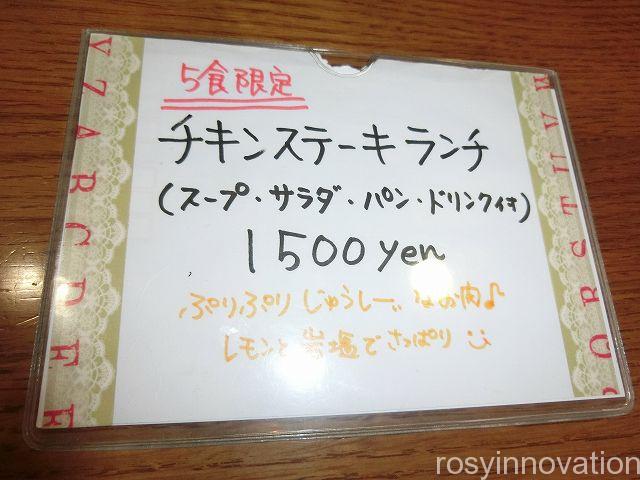 5食限定
チキンステーキランチ
(スープ・サラダ・パン・ドリンク付)
1500yen
ぷりぷり じゅうしー なお肉♪
レモンと岩塩でさっぱり
rosyinnovation